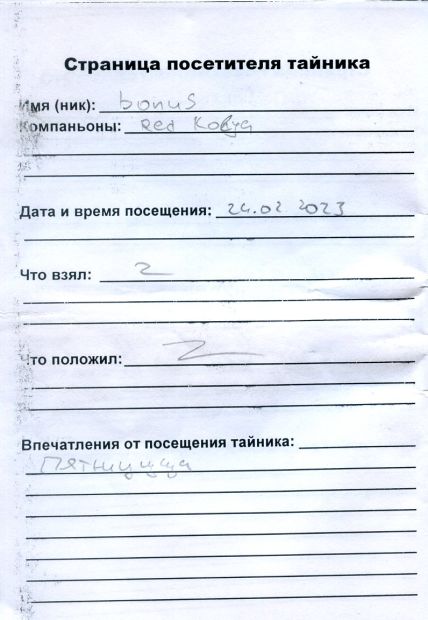 Страница посетителя тайника
Имя (ник): bonus
Компаньоны: Red
Дата и время посещения: 24.02 2023
Что взял: z
Что положил: Z
Впечатления от посещения тайника:
Пятницца